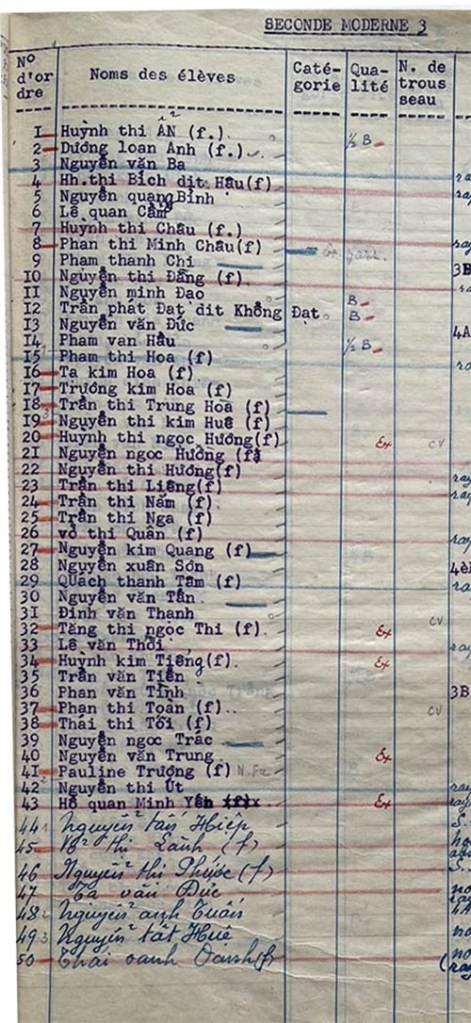 SECONDE MODERNE 3
N° d'ordre Noms des élèves Catégorie Qualité N. de trousseau
I Huỳnh thi ÂN (f.)
2 Dương loan Anh (f.) ½ B
3 Nguyễn văn Ba
4 Hh.thi Bich dit Hâu(f)
5 Nguyễn quang Bình
6 Lê quan Cẩm
7 Huỳnh thi Châu (f.)
8 Phan thi Minh Châu(f)
9 Pham thanh Chi
I0 Nguyễn thi Đăng (f) 3B
II Nguyễn minh Đao B
I2 Trần phát Đạt dit Không Đạt B
I3 Nguyễn văn Đức 4A
I4 Pham van Hâu ½ B
I5 Pham thi Hoa (f)
I6 Ta kim Hoa (f)
I7 Trương kim Hoa (f)
I8 Trần thi Trung Hoa (f)
I9 Nguyễn thi kim Huê (f)
20 Huỳnh thi ngọc Hương(f) Ex CV
2I Nguyễn ngoc Hương (f)
22 Nguyễn thi Hương(f)
23 Trần thi Liêng(f)
24 Trần thi Năm (f)
25 Trần thi Nga (f)
26 võ thi Quân (f)
27 Nguyễn kim Quang (f)
28 Nguyễn xuân Sơn
29 Quach thanh Tâm (f)
30 Nguyễn văn Tân
3I Đinh văn Thanh CV
32 Tăng thi ngọc Thi (f) Ex
33 Lê văn Thời
34 Huỳnh kim Tiếng(f) Ex
35 Trần văn Tiến
36 Phan văn Tinh 3B
37 Phan thi Toàn (f) CV
38 Thái thi Tới (f)
39 Nguyễn ngọc Trác
40 Nguyễn văn Trung Ex
4I Pauline Trương (f)
42 Nguyễn thi Út
43 Hồ quan Minh Yến Ex
44 Nguyễn tấn Hiệp
45 Võ thi Lành (f)
46 Nguyễn thi Phước (f)
47 Tạ văn Đức
48 Nguyễn anh Tuấn
49 Nguyễn tất Huê
50 Thái oanh Oanh(f)